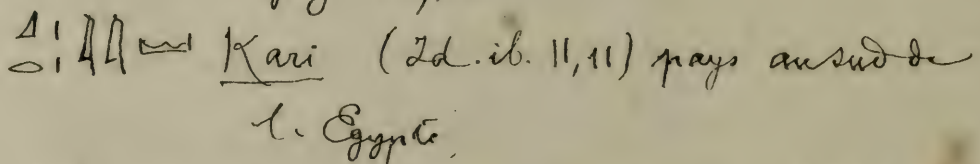 Kari (Id. ib. 11,11) pays au sud de
l. Egypte